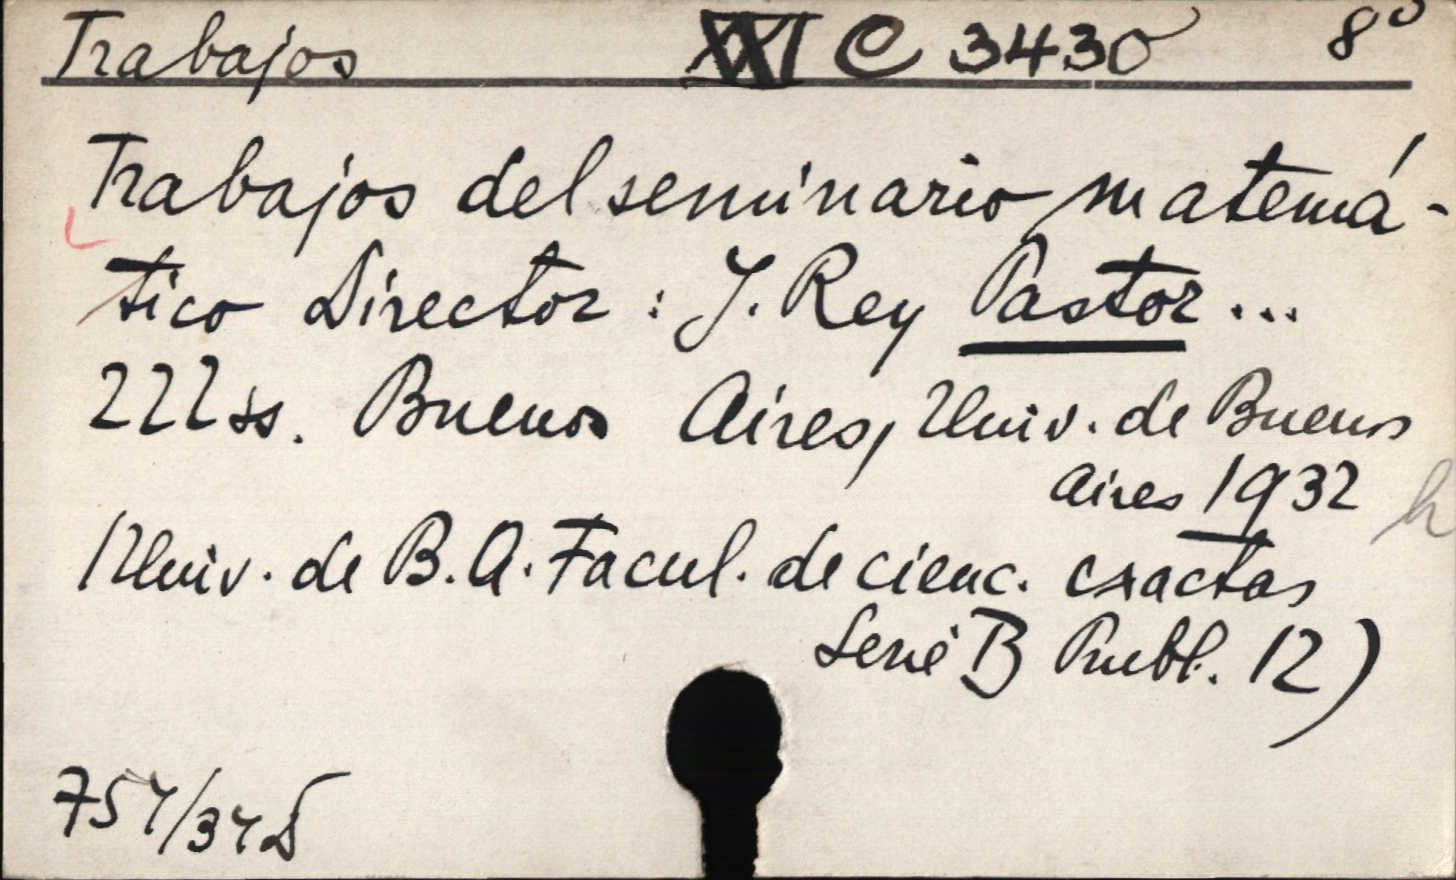 Trabajos XXI C 3430 8º
Trabajos del seminario matemá-
tico Director : J. Rey Pastor ...
222 ss. Buenos Aires, Univ. de Buenos
Aires 1932
(Univ. de B. A. Facul. de cienc. exactas
Serie B Publ. 12)
h